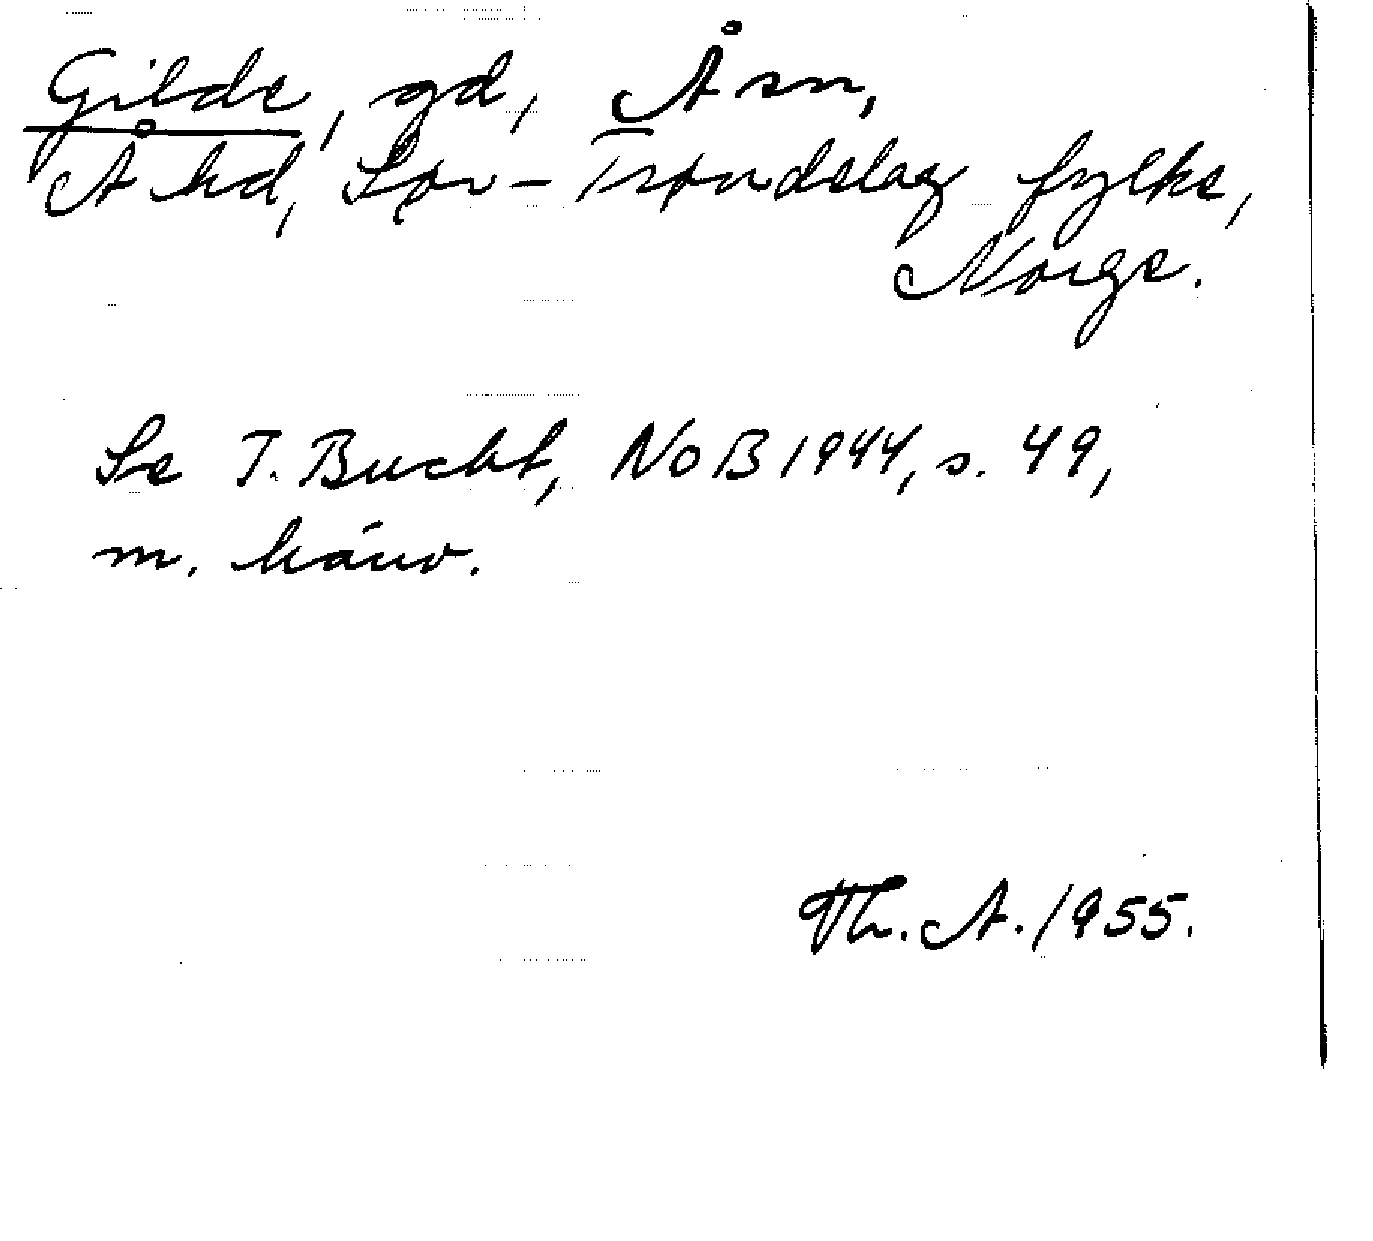 Gilde, gd, Å sn,
Å hd, Sør-Trøndelag fylke,
Norge.
Se T. Bucht, NoB 1944, s. 49,
m. hänv.
Th. A. 1955.